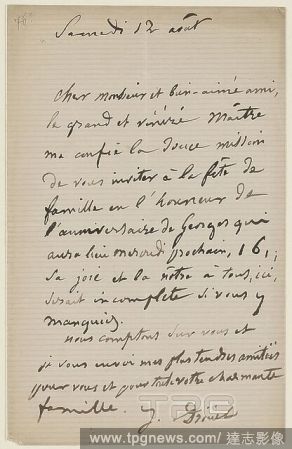 76
Samedi 12 août
Cher monsieur et bien-aimé ami,
le grand et vénéré Maître
m'a confié la douce mission
de vous inviter à la fête de
famille en l'honneur de
l'anniversaire de Georges qui
aura lieu mercredi prochain, 16,
sa joie et la nôtre à tous, ici,
serait incomplète si vous y
manquiez.
nous comptons sur vous et
je vous envoie mes plus tendres amitiés
pour vous et pour toute votre charmante
famille. J. Drouet
TPG
www.tpgnews.com / 達志影像